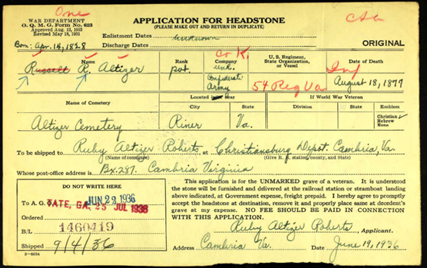 One
C S A
WAR DEPARTMENT
O. Q. M. G. Form No. 623
Approved Aug. 13, 1923
APPLICATION FOR HEADSTONE
(PLEASE MAKE OUT AND RETURN IN DUPLICATE)
Enlistment Dates unknown
Discharge Dates
ORIGINAL
Born: Apr. 14, 1828
Name
Rank
Company
U. S. Regiment, State Organization, or Vessel
Date of Death
Co K.
Russell R. Altizer
pvt.
unk.
Confederate Army
54 Reg Va
Inf
August 18, 1877
Name of Cemetery
Located
City
State
If World War Veteran
Division
State
Emblem
Christian
Hebrew
None
Altizer Cemetery
Riner
Va.
To be shipped to Ruby Altizer Roberts at Christiansburg Depot. Cambria, Va.
(Name of consignee)
Whose post-office address is Bx. 287. Cambria Virginia
DO NOT WRITE HERE
To A. G. JUN 29 1936
TATE, GA. 25 JUL 1936
B/L 1460419
Shipped 9/4/36
This application is for the UNMARKED grave of a veteran. It is understood the stone will be furnished and delivered at the railroad station or steamboat landing above indicated, at Government expense, freight prepaid. I hereby agree to promptly accept the headstone at destination, remove it and properly place same at decedent's grave at my expense. NO FEE SHOULD BE PAID IN CONNECTION WITH THIS APPLICATION.
Ruby Altizer Roberts Applicant
Address Cambria Va. Date June 19, 1936